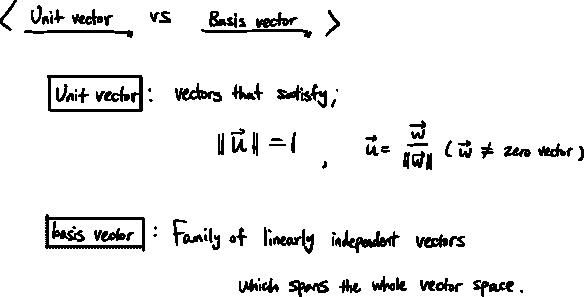 < Unit vector vs Basis vector >
Unit vector : vectors that satisfy;
‖u⃗‖ = 1 , u⃗ = w⃗ / ‖w⃗‖ ( w⃗ ≠ zero vector )
basis vector : Family of linearly independent vectors
which spans the whole vector space.